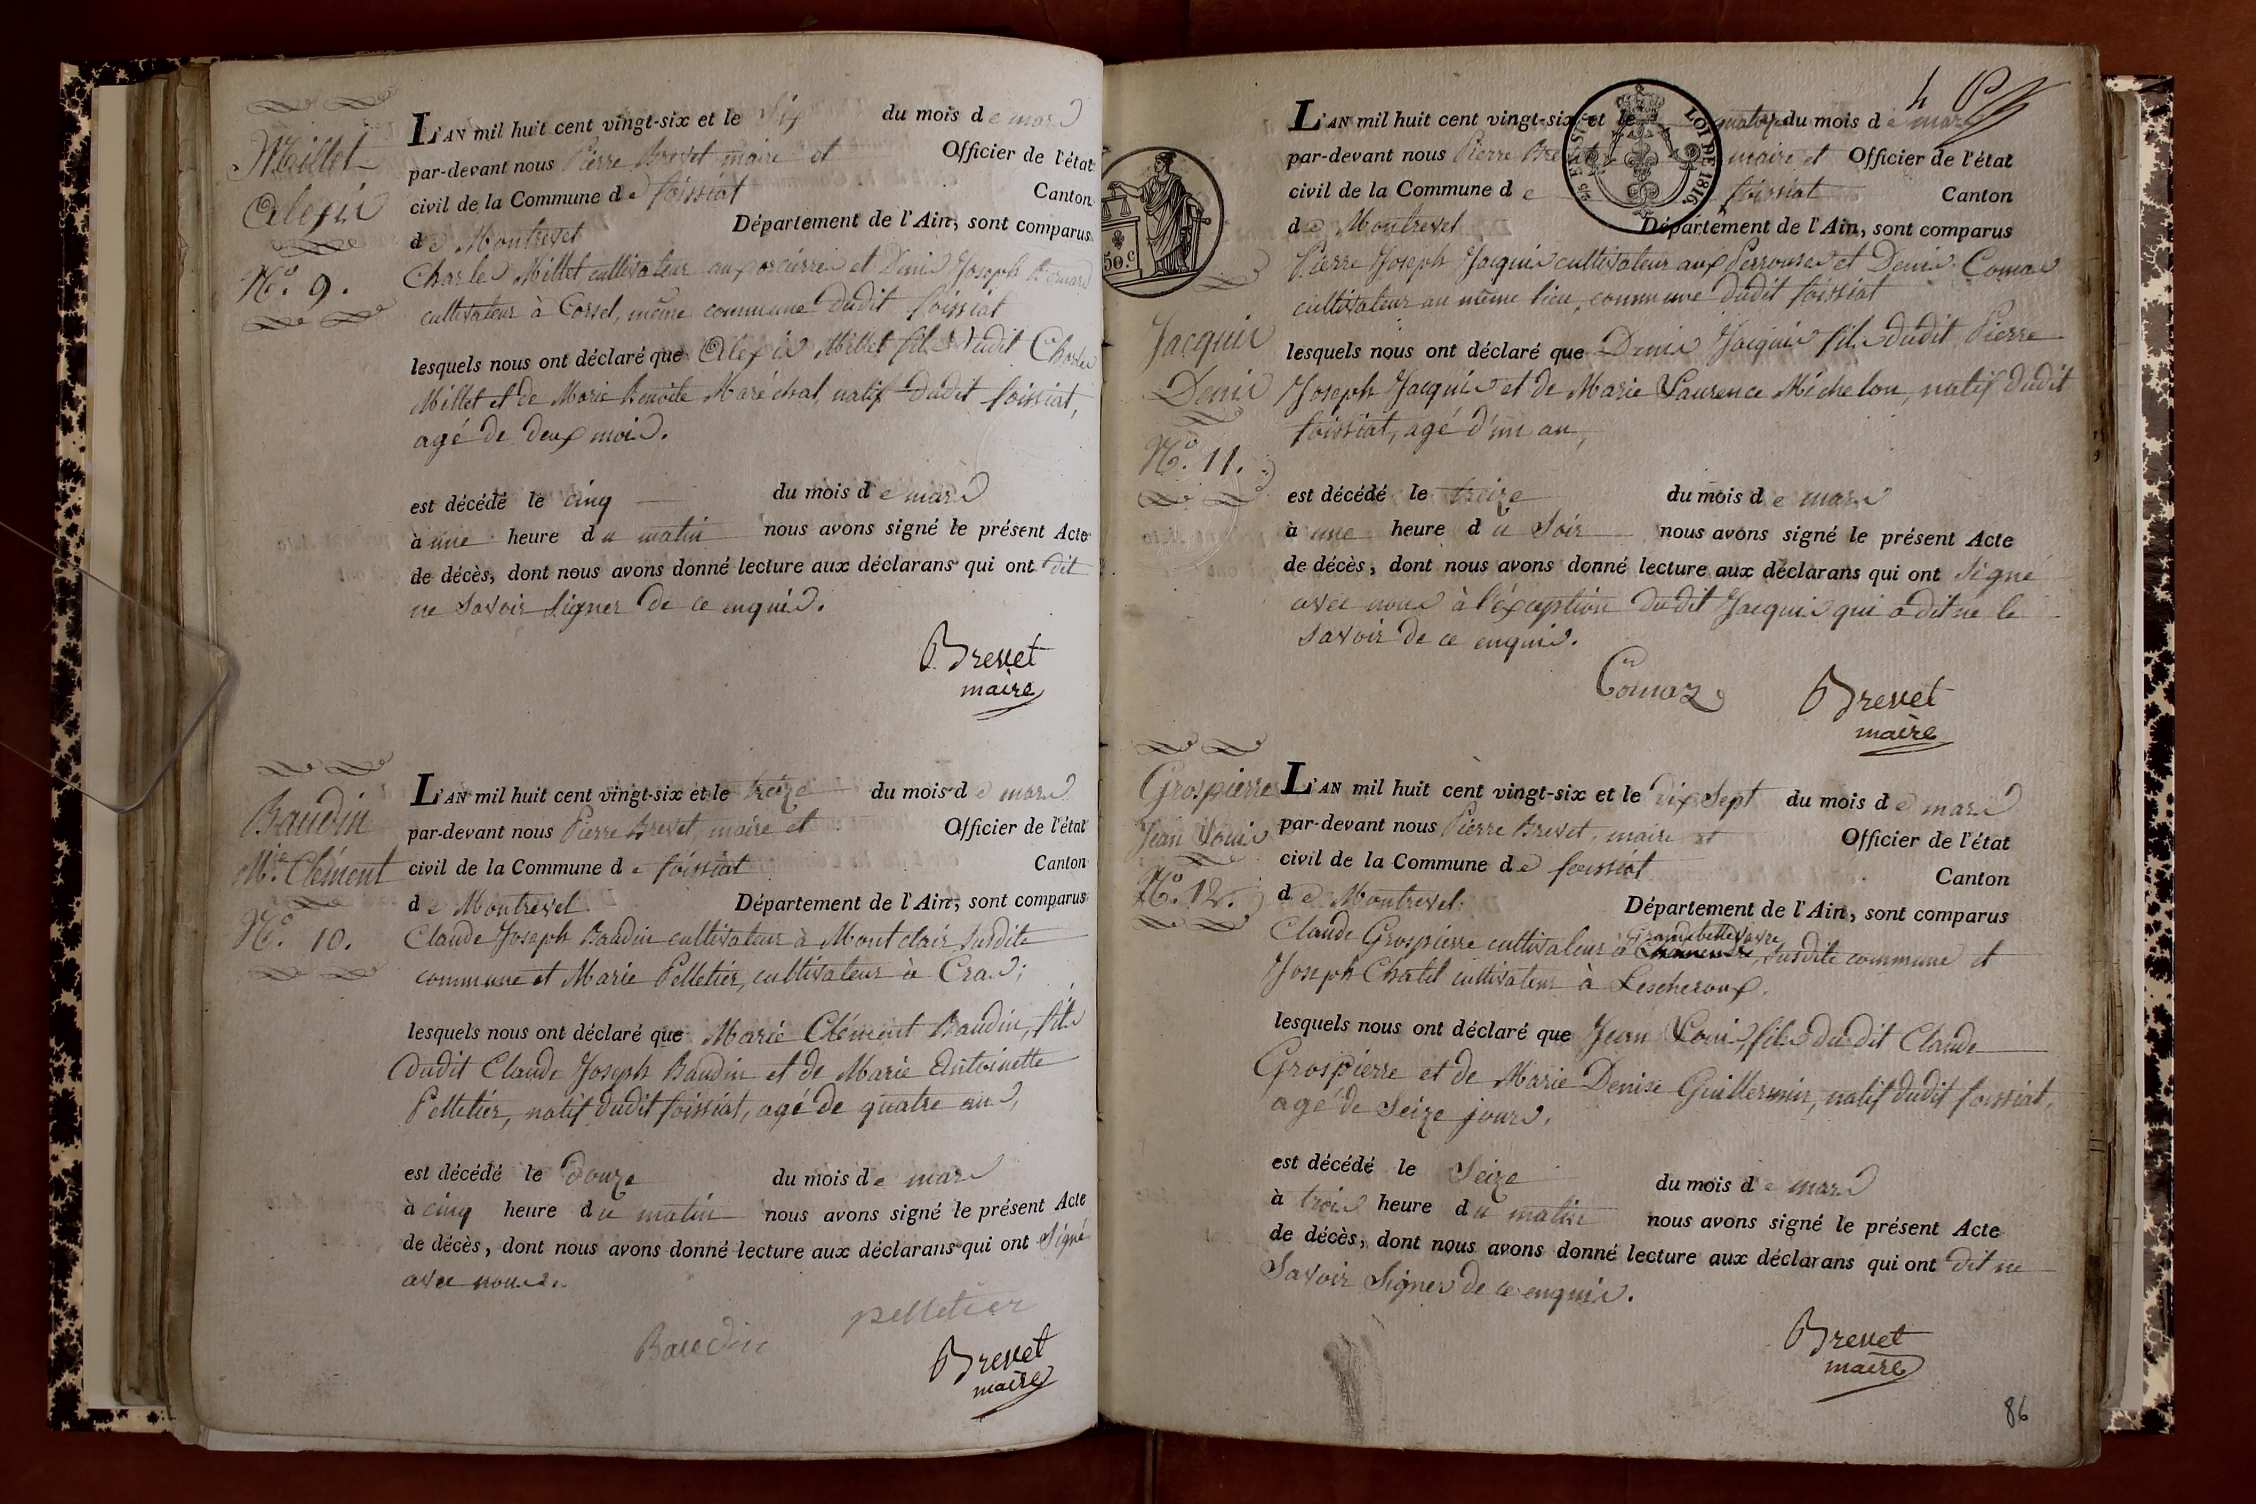 Millet
Alexis
N.o 9.
L'AN mil huit cent vingt-six et le Six du mois de mars
par-devant nous Pierre Brevet maire et Officier de l'état
civil de la Commune de foissiat Canton
de Montrevel Département de l'Ain, sont comparus
Charles Millet cultivateur aux et Denis Joseph
cultivateur à Corsel, même commune dudit foissiat
lesquels nous ont déclaré que Alexis Millet fils dudit Charles
Millet et de Marie Benoite Maréchal, natif dudit foissiat,
agé de deux mois.
est décédé le cinq du mois de mars
à une heure du matin nous avons signé le présent Acte
de décès, dont nous avons donné lecture aux déclarans qui ont dit
ne Savoir Signer de ce enquis.
Brevet
maire
Baudin
M.ie Clément
N.o 10.
L'AN mil huit cent vingt-six et le treize du mois de mars
par-devant nous Pierre Brevet, maire et Officier de l'état
civil de la Commune de foissiat Canton
de Montrevel Département de l'Ain, sont comparus
Claude Joseph Baudin cultivateur à Montclair Susdite
commune et Marie Pelletier, cultivateur à Cras;
lesquels nous ont déclaré que Marie Clément Baudin, fils
dudit Claude Joseph Baudin et de Marie Antoinette
Pelletier, natif dudit foissiat, agé de quatre ans,
est décédé le douze du mois de mars
à cinq heure du matin nous avons signé le présent Acte
de décès, dont nous avons donné lecture aux déclarans qui ont Signé
avec nous.
Baudin pelletier
Brevet
maire
50.c
LOI DE 1816
Jacquis
Denis
N.o 11.
L'AN mil huit cent vingt-six et le quatorze du mois de mars
par-devant nous Pierre Brevet maire et Officier de l'état
civil de la Commune de foissiat Canton
de Montrevel Département de l'Ain, sont comparus
Pierre Joseph Jacquis cultivateur aux Perrouses et Denis Comas
cultivateur au même lieu, commune dudit foissiat
lesquels nous ont déclaré que Denis Jacquis fils dudit Pierre
Joseph Jacquis et de Marie Laurence Michelon, natif dudit
foissiat, agé d'un an,
est décédé le treize du mois de mars
à une heure du Soir nous avons signé le présent Acte
de décès, dont nous avons donné lecture aux déclarans qui ont Signé
avec nous à l'éxception dudit Jacquis qui a dit ne le
Savoir de ce enquis.
Comaz Brevet
maire
Grospierre
Jean Louis
N.o 12.
L'AN mil huit cent vingt-six et le dix Sept du mois de mars
par-devant nous Pierre Brevet, maire et Officier de l'état
civil de la Commune de foissiat Canton
de Montrevel Département de l'Ain, sont comparus
Claude Grospierre cultivateur à Grandebellevavre, Susdite commune et
Joseph Chatel cultivateur à Lescheroux.
lesquels nous ont déclaré que Jean Louis, fils dudit Claude
Grospierre et de Marie Denise Guillermin, natif dudit foissiat,
agé de Seize jours,
est décédé le Seize du mois de mars
à trois heure du matin nous avons signé le présent Acte
de décès, dont nous avons donné lecture aux déclarans qui ont dit ne
Savoir Signer de ce enquis.
Brevet
maire
86